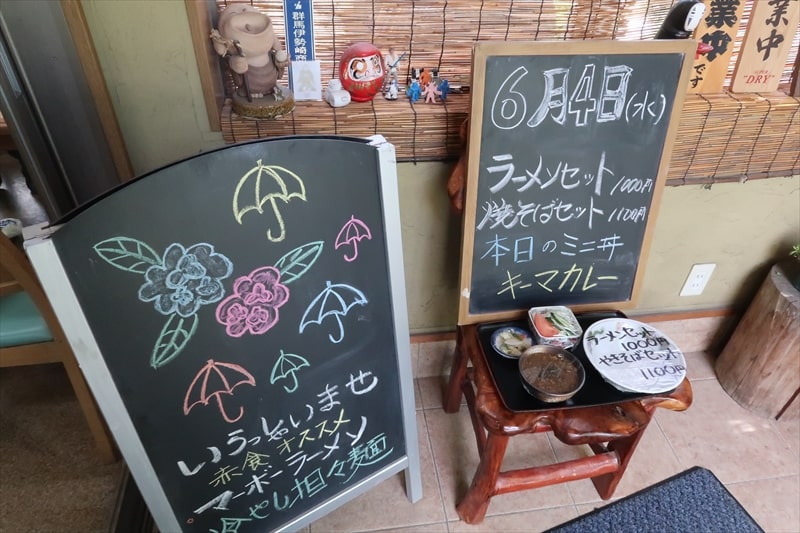 いらっしゃいませ
赤食 オススメ
マーボーラーメン
冷やし担々麺
群馬伊勢崎商
6月4日(水)
ラーメンセット 1000円
焼そばセット 1100円
本日のミニ丼
キーマカレー
ラーメンセット
1000円
やきそばセット
1100円
業中
です
業中
"DRY"